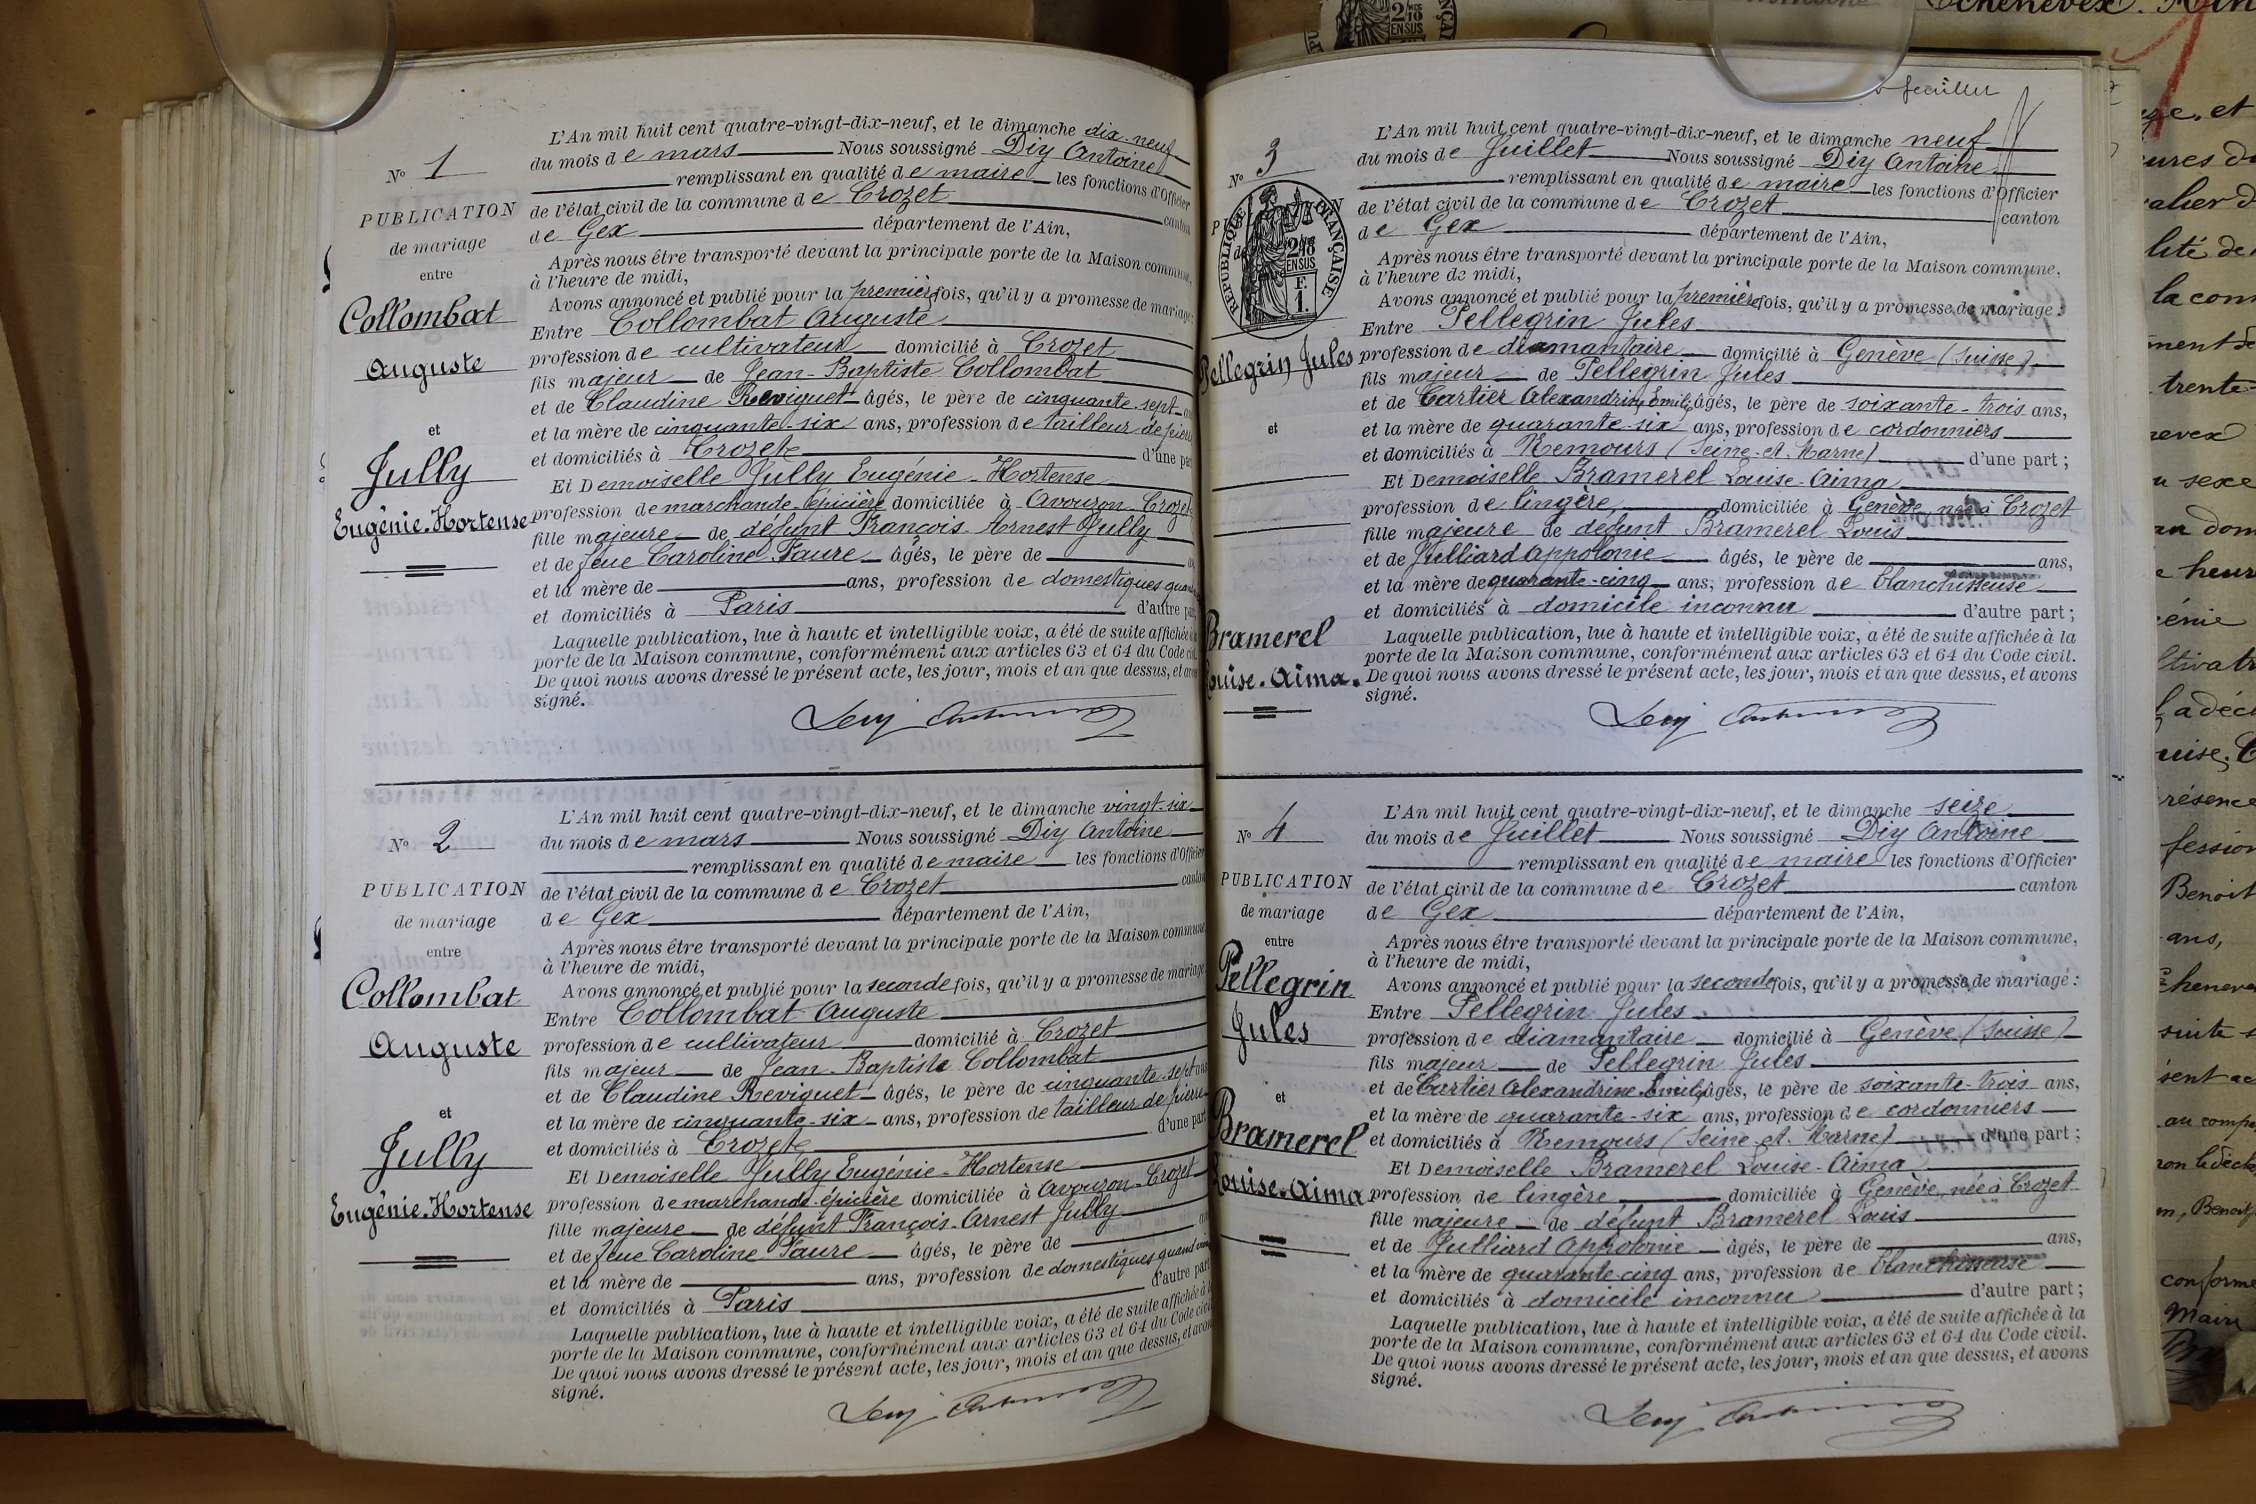 N° 1
PUBLICATION
de mariage
entre
Collombat
Auguste
et
Jully
Eugénie-Hortense
L'An mil huit cent quatre-vingt-dix-neuf, et le dimanche dix-neuf
du mois de mars Nous soussigné Diy Antoine
remplissant en qualité de maire les fonctions d'Officier
de l'état civil de la commune de Crozet canton
de Gex département de l'Ain,
Après nous être transporté devant la principale porte de la Maison commune,
à l'heure de midi,
Avons annoncé et publié pour la première fois, qu'il y a promesse de mariage:
Entre Collombat Auguste
profession de cultivateur domicilié à Crozet
fils majeur de Jean-Baptiste Collombat
et de Claudine Reviguet âgés, le père de cinquante-sept
et la mère de cinquante-six ans, profession de tailleur de pierre
et domiciliés à Crozet d'une part
Et Demoiselle Jully Eugénie-Hortense
profession de marchande-épicière domiciliée à Avouzon-Crozet
fille majeure de défunt François-Arnest Jully
et de feue Caroline Faure âgés, le père de
et la mère de ans, profession de domestiques quand
et domiciliés à Paris d'autre part
Laquelle publication, lue à haute et intelligible voix, a été de suite affichée à la
porte de la Maison commune, conformément aux articles 63 et 64 du Code civil.
De quoi nous avons dressé le présent acte, les jour, mois et an que dessus, et avons
signé.
Diy Antoine
N° 2
PUBLICATION
de mariage
entre
Collombat
Auguste
et
Jully
Eugénie-Hortense
L'An mil huit cent quatre-vingt-dix-neuf, et le dimanche vingt-six
du mois de mars Nous soussigné Diy Antoine
remplissant en qualité de maire les fonctions d'Officier
de l'état civil de la commune de Crozet canton
de Gex département de l'Ain,
Après nous être transporté devant la principale porte de la Maison commune
à l'heure de midi,
Avons annoncé et publié pour la seconde fois, qu'il y a promesse de mariage
Entre Collombat Auguste
profession de cultivateur domicilié à Crozet
fils majeur de Jean-Baptiste Collombat
et de Claudine Reviguet âgés, le père de cinquante-sept ans
et la mère de cinquante-six ans, profession de tailleur de pierre
et domiciliés à Crozet d'une part
Et Demoiselle Jully Eugénie-Hortense
profession de marchande-épicière domiciliée à Avouzon-Crozet
fille majeure de défunt François-Arnest Jully
et de feue Caroline Faure âgés, le père de
et la mère de ans, profession de domestiques quand
et domiciliés à Paris d'autre part
Laquelle publication, lue à haute et intelligible voix, a été de suite affichée à la
porte de la Maison commune, conformément aux articles 63 et 64 du Code civil
De quoi nous avons dressé le présent acte, les jour, mois et an que dessus, et avons
signé.
Diy Antoine
feuillet
N° 3
RÉPUBLIQUE FRANÇAISE
2/10 EN SUS
F. 1.
Pellegrin Jules
et
Bramerel
Louise-Aima.
L'An mil huit cent quatre-vingt-dix-neuf, et le dimanche neuf
du mois de Juillet Nous soussigné Diy Antoine
remplissant en qualité de maire les fonctions d'Officier
de l'état civil de la commune de Crozet canton
de Gex département de l'Ain,
Après nous être transporté devant la principale porte de la Maison commune,
à l'heure de midi,
Avons annoncé et publié pour la première fois, qu'il y a promesse de mariage:
Entre Pellegrin Jules
profession de diamantaire domicilié à Genève (Suisse)
fils majeur de Pellegrin Jules
et de Cartier Alexandrine Emilie âgés, le père de soixante-trois ans,
et la mère de quarante-six ans, profession de cordonniers
et domiciliés à Nemours (Seine-et-Marne) d'une part;
Et Demoiselle Bramerel Louise-Aima
profession de lingère domiciliée à Genève, née à Crozet
fille majeure de défunt Bramerel Louis
et de Julliard Appolonie âgés, le père de ans,
et la mère de quarante-cinq ans, profession de blanchisseuse
et domiciliés à domicile inconnu d'autre part;
Laquelle publication, lue à haute et intelligible voix, a été de suite affichée à la
porte de la Maison commune, conformément aux articles 63 et 64 du Code civil.
De quoi nous avons dressé le présent acte, les jour, mois et an que dessus, et avons
signé.
Diy Antoine
N° 4
PUBLICATION
de mariage
entre
Pellegrin
Jules
et
Bramerel
Louise-Aima
L'An mil huit cent quatre-vingt-dix-neuf, et le dimanche seize
du mois de Juillet Nous soussigné Diy Antoine
remplissant en qualité de maire les fonctions d'Officier
de l'état civil de la commune de Crozet canton
de Gex département de l'Ain,
Après nous être transporté devant la principale porte de la Maison commune,
à l'heure de midi,
Avons annoncé et publié pour la seconde fois, qu'il y a promesse de mariage:
Entre Pellegrin Jules
profession de diamantaire domicilié à Genève (Suisse)
fils majeur de Pellegrin Jules
et de Cartier Alexandrine-Emilie âgés, le père de soixante-trois ans,
et la mère de quarante-six ans, profession de cordonniers
et domiciliés à Nemours (Seine-et-Marne) d'une part;
Et Demoiselle Bramerel Louise-Aima
profession de lingère domiciliée à Genève, née à Crozet
fille majeure de défunt Bramerel Louis
et de Julliard Appolonie âgés, le père de ans,
et la mère de quarante-cinq ans, profession de blanchisseuse
et domiciliés à domicile inconnu d'autre part;
Laquelle publication, lue à haute et intelligible voix, a été de suite affichée à la
porte de la Maison commune, conformément aux articles 63 et 64 du Code civil.
De quoi nous avons dressé le présent acte, les jour, mois et an que dessus, et avons
signé.
Diy Antoine